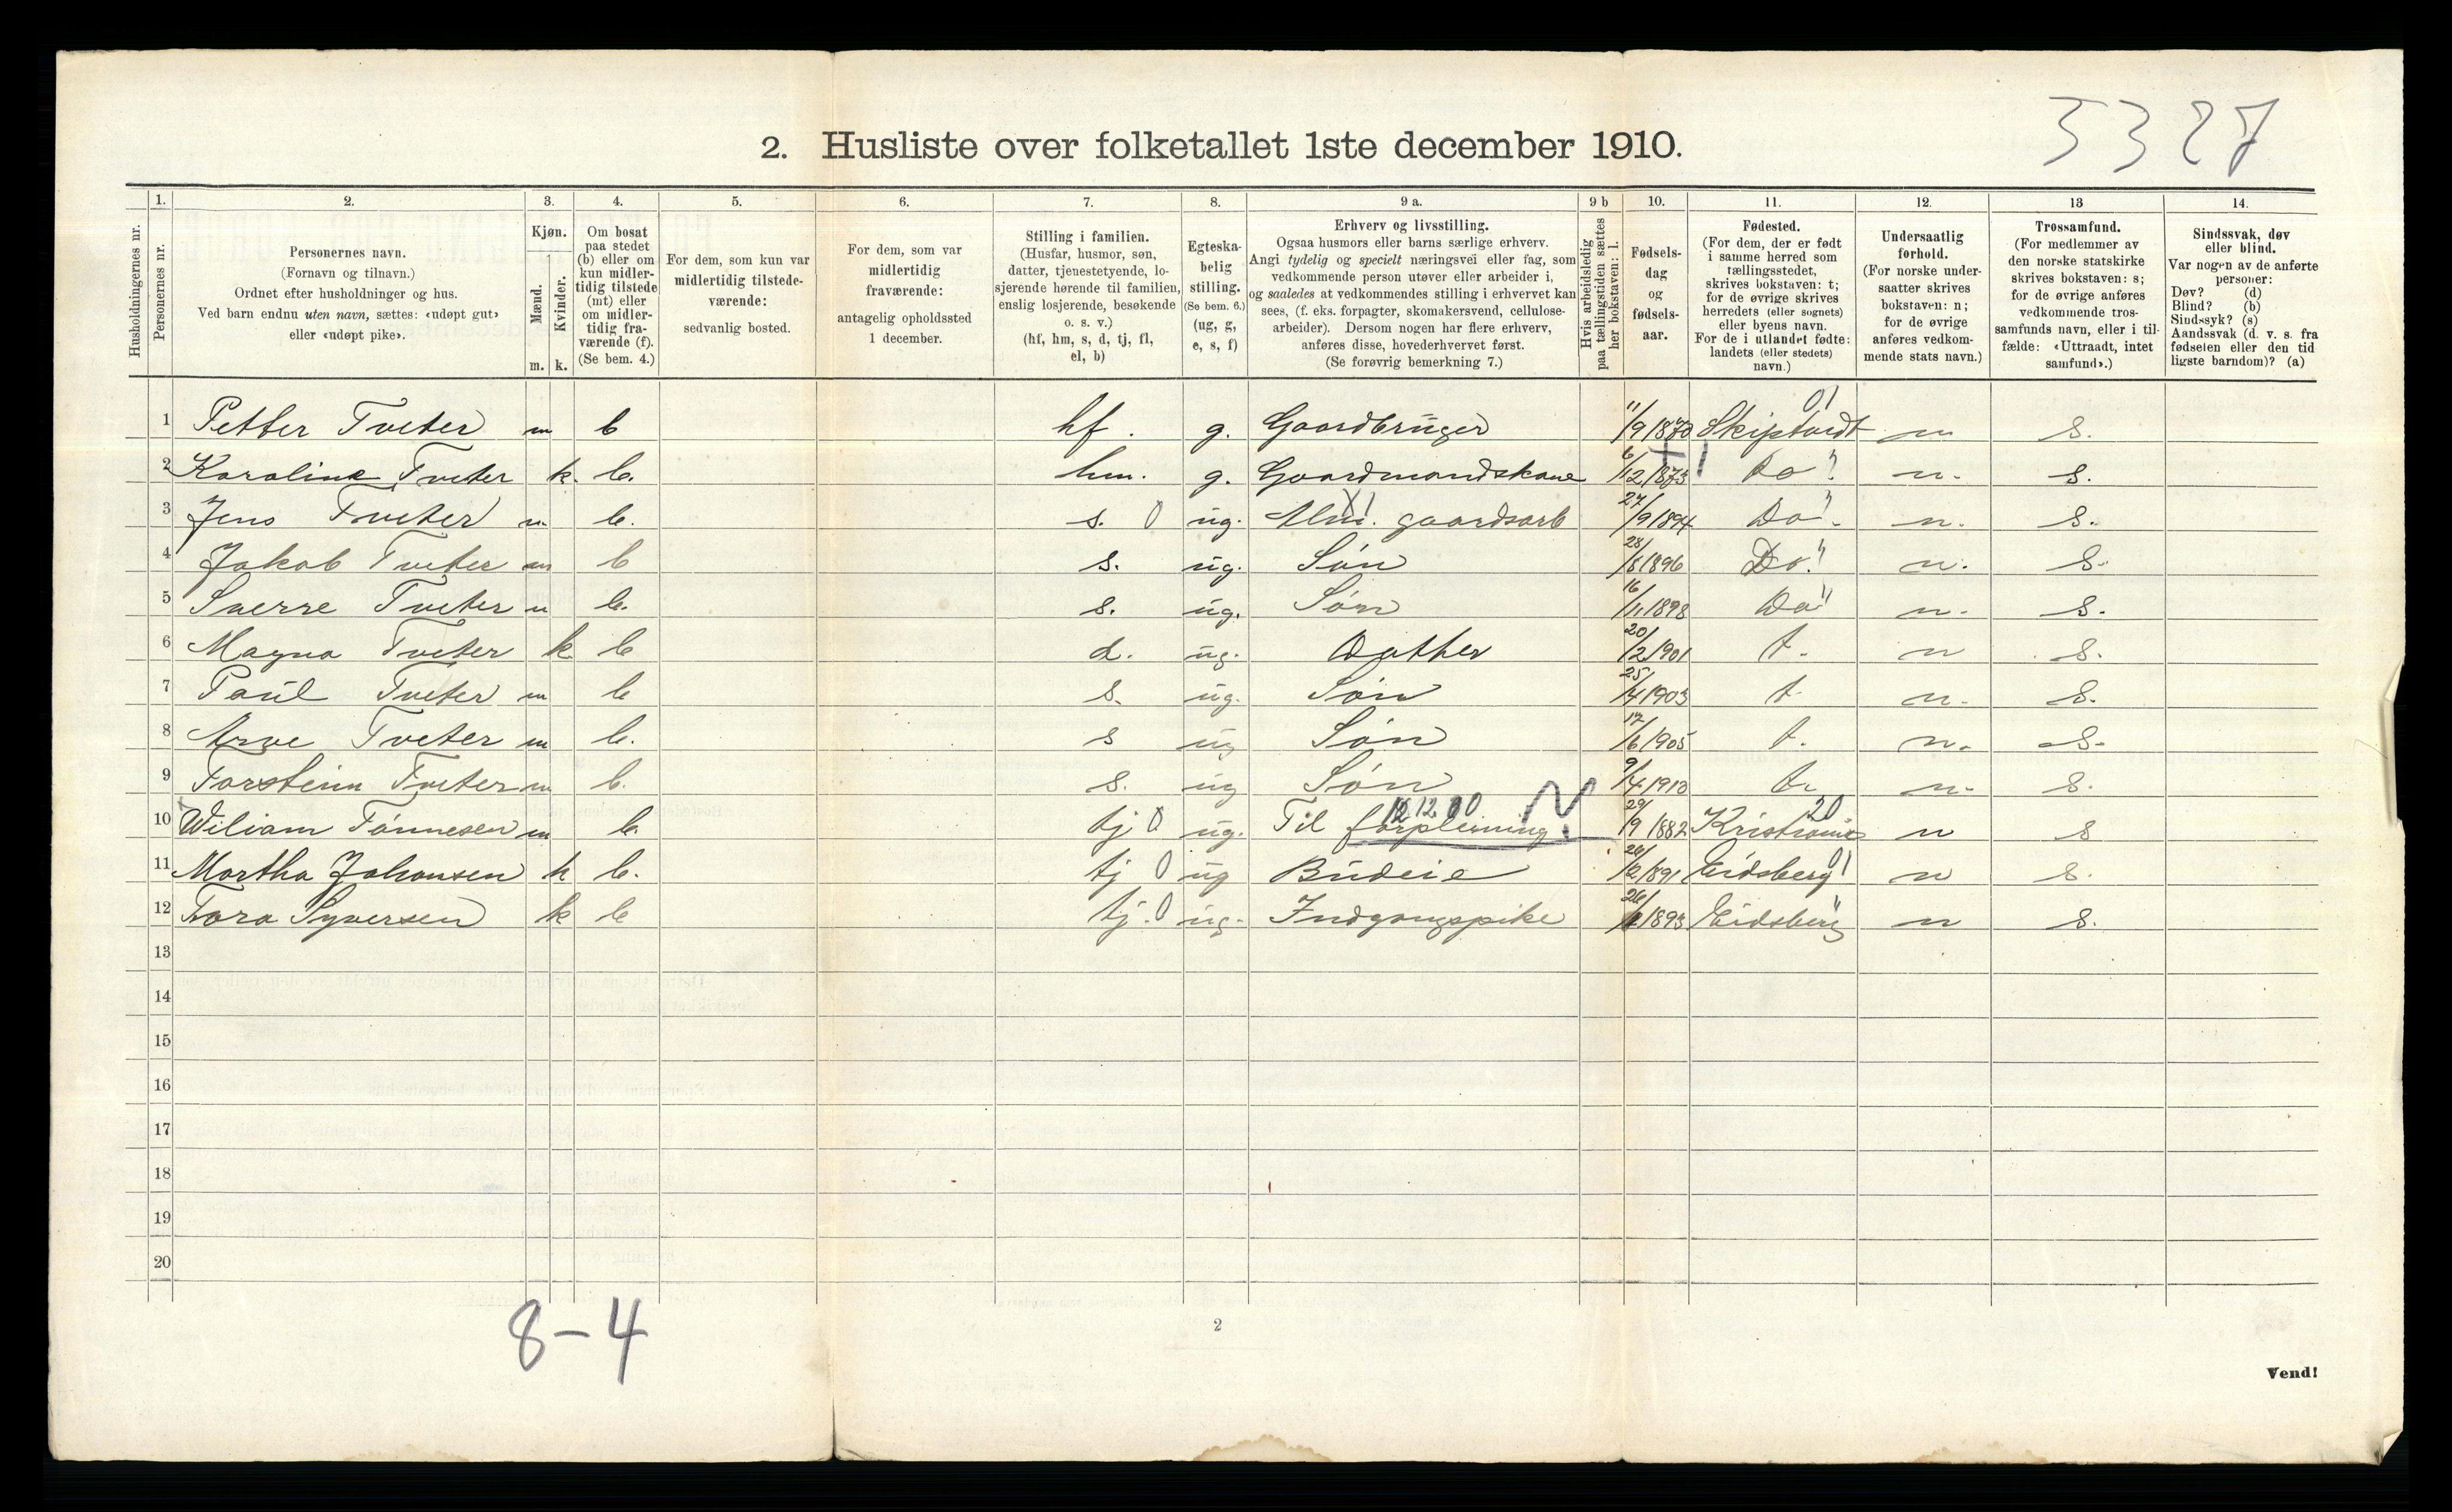 5327
2. Husliste over folketallet 1ste december 1910.
1. 2. 3. 4. 5. 6. 7. 8. 9 a. 9 b 10. 11. 12. 13 14.
Husholdningernes nr.
Personernes nr.
Personernes navn.
(Fornavn og tilnavn.)
Ordnet efter husholdninger og hus.
Ved barn endnu uten navn, sættes: «udøpt gut»
eller «udøpt pike».
Kjøn.
Mænd.
Kvinder.
m. k.
Om bosat
paa stedet
(b) eller om
kun midler-
tidig tilstede
(mt) eller
om midler-
tidig fra-
værende (f).
(Se bem. 4.)
For dem, som kun var
midlertidig tilstede-
værende:
sedvanlig bosted.
For dem, som var
midlertidig
fraværende:
antagelig opholdssted
1 december.
Stilling i familien.
(Husfar, husmor, søn,
datter, tjenestetyende, lo-
sjerende hørende til familien,
enslig losjerende, besøkende
o. s. v.)
(hf, hm, s, d, tj, fl,
el, b)
Egteska-
belig
stilling.
(Se bem. 6.)
(ug, g,
e, s, f)
Erhverv og livsstilling.
Ogsaa husmors eller barns særlige erhverv.
Angi tydelig og specielt næringsvei eller fag, som
vedkommende person utøver eller arbeider i,
og saaledes at vedkommendes stilling i erhvervet kan
sees, (f. eks. forpagter, skomakersvend, cellulose-
arbeider). Dersom nogen har flere erhverv,
anføres disse, hovederhvervet først.
(Se forøvrig bemerkning 7.)
Hvis arbeidsledig
paa tællingstiden sættes
her bokstaven: l.
Fødsels-
dag
og
fødsels-
aar.
Fødested.
(For dem, der er født
i samme herred som
tællingsstedet,
skrives bokstaven: t;
for de øvrige skrives
herredets (eller sognets)
eller byens navn.
For de i utlandet fødte:
landets (eller stedets)
navn.)
Undersaatlig
forhold.
(For norske under-
saatter skrives
bokstaven: n;
for de øvrige
anføres vedkom-
mende stats navn.)
Trossamfund.
(For medlemmer av
den norske statskirke
skrives bokstaven: s;
for de øvrige anføres
vedkommende tros-
samfunds navn, eller i til-
fælde: «Uttraadt, intet
samfund».)
Sindssvak, døv
eller blind.
Var nogen av de anførte
personer:
Døv? (d)
Blind? (b)
Sindssyk? (s)
Aandssvak (d. v. s. fra
fødselen eller den tid
ligste barndom)? (a)
1 Petter Tveter m b hf. g. Gaardbruger 11/9 1870 Skiptvedt 01 n s.
2 Karoline Tveter k. b. hm. g. Gaardmandskone 6/12 1873 Do " n. s.
3 Jens Tveter m b. s. 0 ug. Alm. gaardsarb 27/9 1894 Do " n. s.
4 Jakob Tveter m b s. ug. Søn 28/8 1896 Do " n. s.
5 Sverre Tveter m b. s. ug. Søn 16/11 1898 Do " n. s.
6 Magna Tveter k b d. ug. Datther 20/2 1901 t. n s.
7 Paul Tveter m b s. ug. Søn 25/4 1903 t n. s.
8 Arve Tveter m b. s ug Søn 17/6 1905 t. n. s.
9 Torsteinn Tveter m b. s. ug Søn 9/4 1910 t. n. s.
10 Wiliam Tønnesen m b. tj 0 ug. Til forpleining 12.12.00 N 29/9 1882 Kristiania 20 n s
11 Martha Johansen k b. tj 0 ug Budeie 26/2 1891 Eidsberg 01 n s.
12 Thora Syversen k b tj. 0 ug. Indgangspike 26/ 1893 Eidsberg " n s.
13
14
15
16
17
18
19
20
8-4
2
Vend!